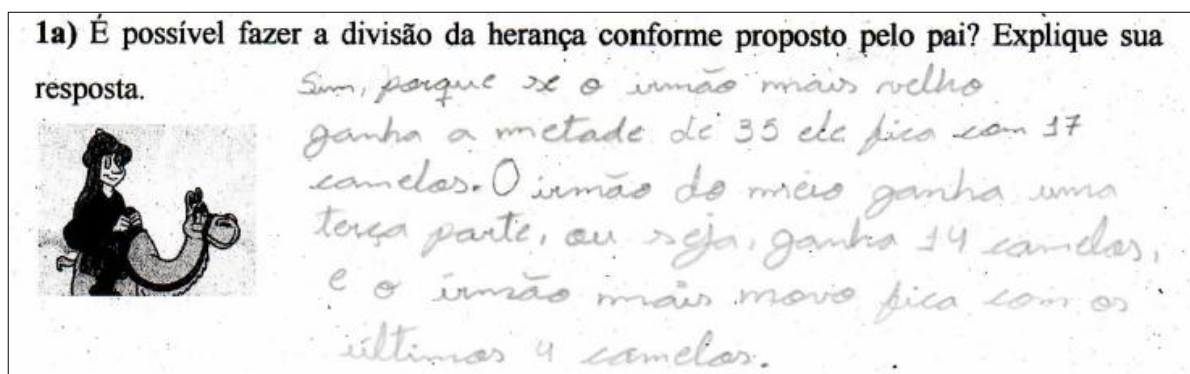 1a) É possível fazer a divisão da herança conforme proposto pelo pai? Explique sua
resposta.
Sim, porque se o irmão mais velho
ganha a metade de 35 ele fica com 17
camelos. O irmão do meio ganha uma
terça parte, ou seja, ganha 14 camelos,
e o irmão mais novo fica com os
últimos 4 camelos.